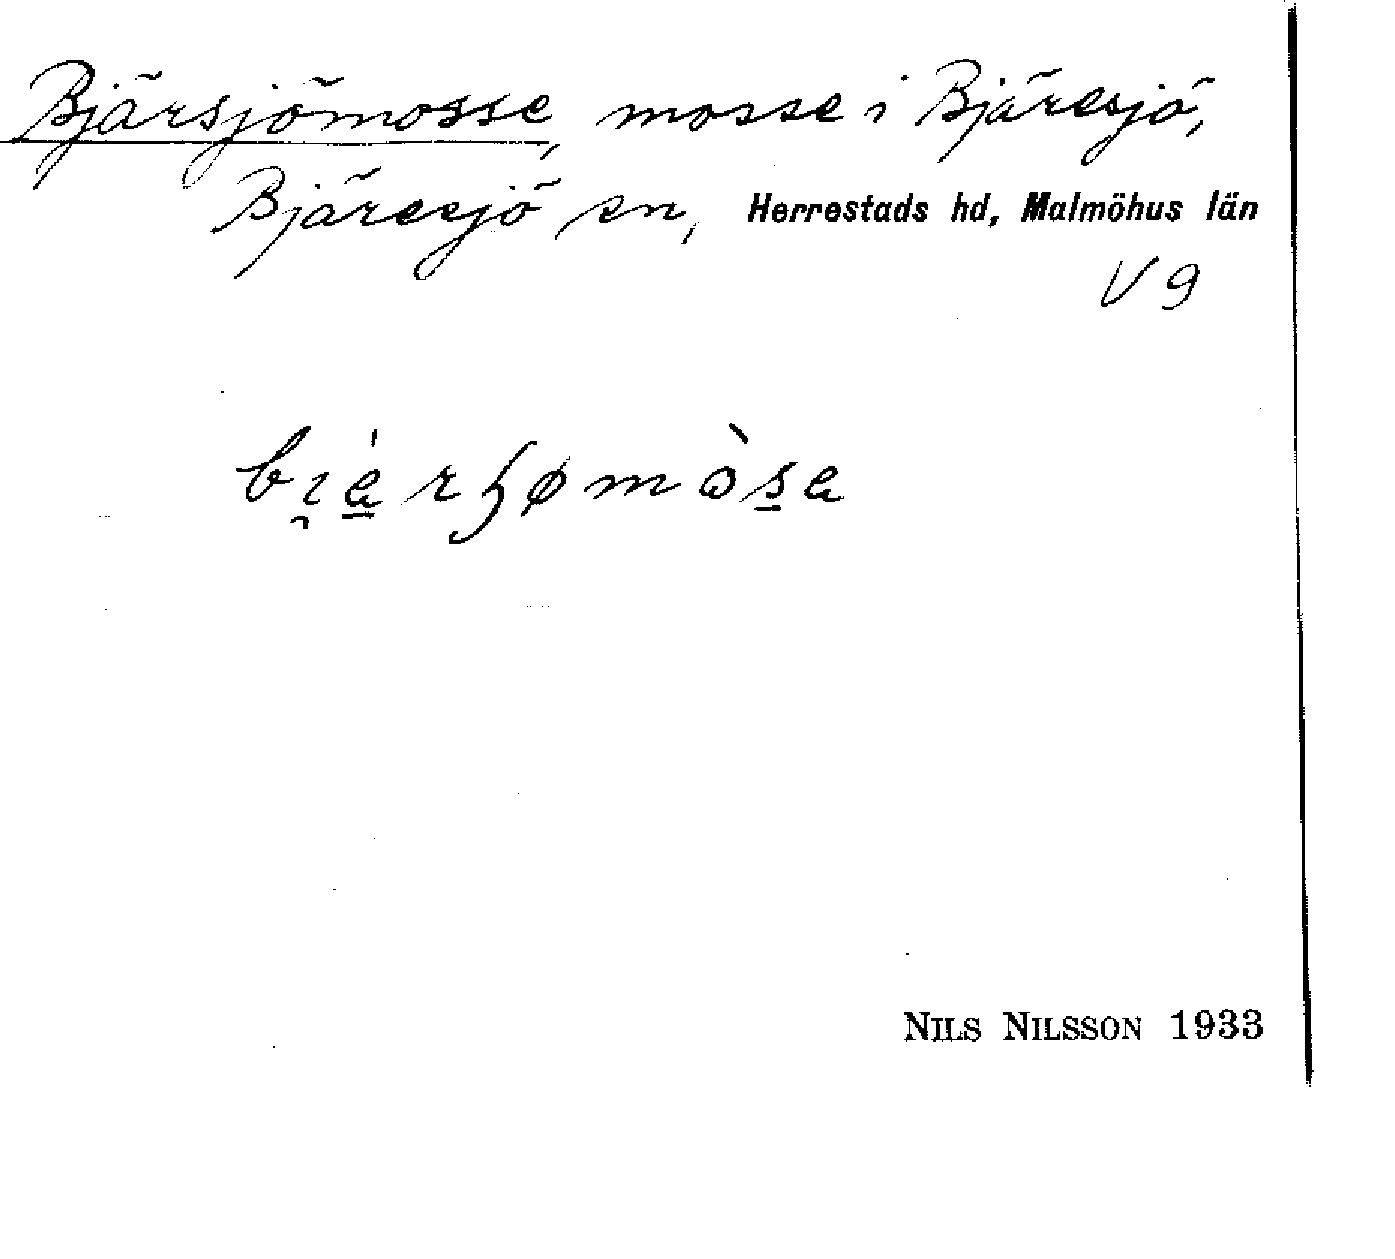 Bjärsjömosse, mosse i Bjäresjö,
Bjäresjö sn, Herrestads hd, Malmöhus län
V 9
NILS NILSSON 1933